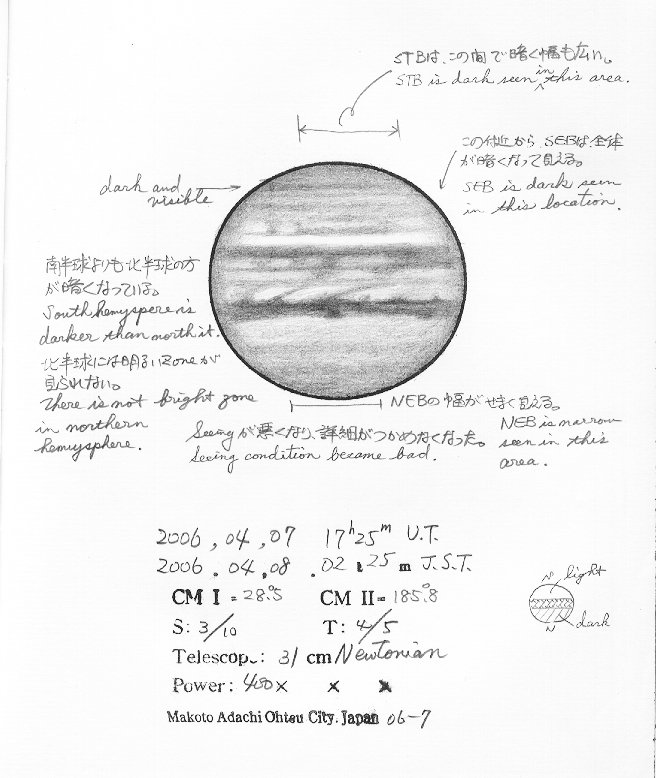 STBは、この間で暗く幅も広い。
STB is dark seen in this area.
この付近から SEBは、全体
が暗くなって見える。
SEB is dark seen
in this location.
dark and
visible
南半球よりも北半球の方
が暗くなっている。
South hemyspere is
darker than north it.
北半球には明るいzoneが
見られない。
There is not bright zone
in northern
hemysphere.
NEBの幅がせまく見える。
NEB is narrow
seen in this
area.
Seeingが悪くなり、詳細がつかめなくなった。
Seeing condition became bad.
2006, 04, 07 17h25m U.T.
2006. 04. 08. 02 : 25 m J.S.T.
CM I = 28.°5 CM II = 185.°8
S: 3/10 T: 4/5
Telescop.: 31 cm Newtonian
Power: 400× × ×
Makoto Adachi Ohtsu City. Japan 06-7
light
N
dark